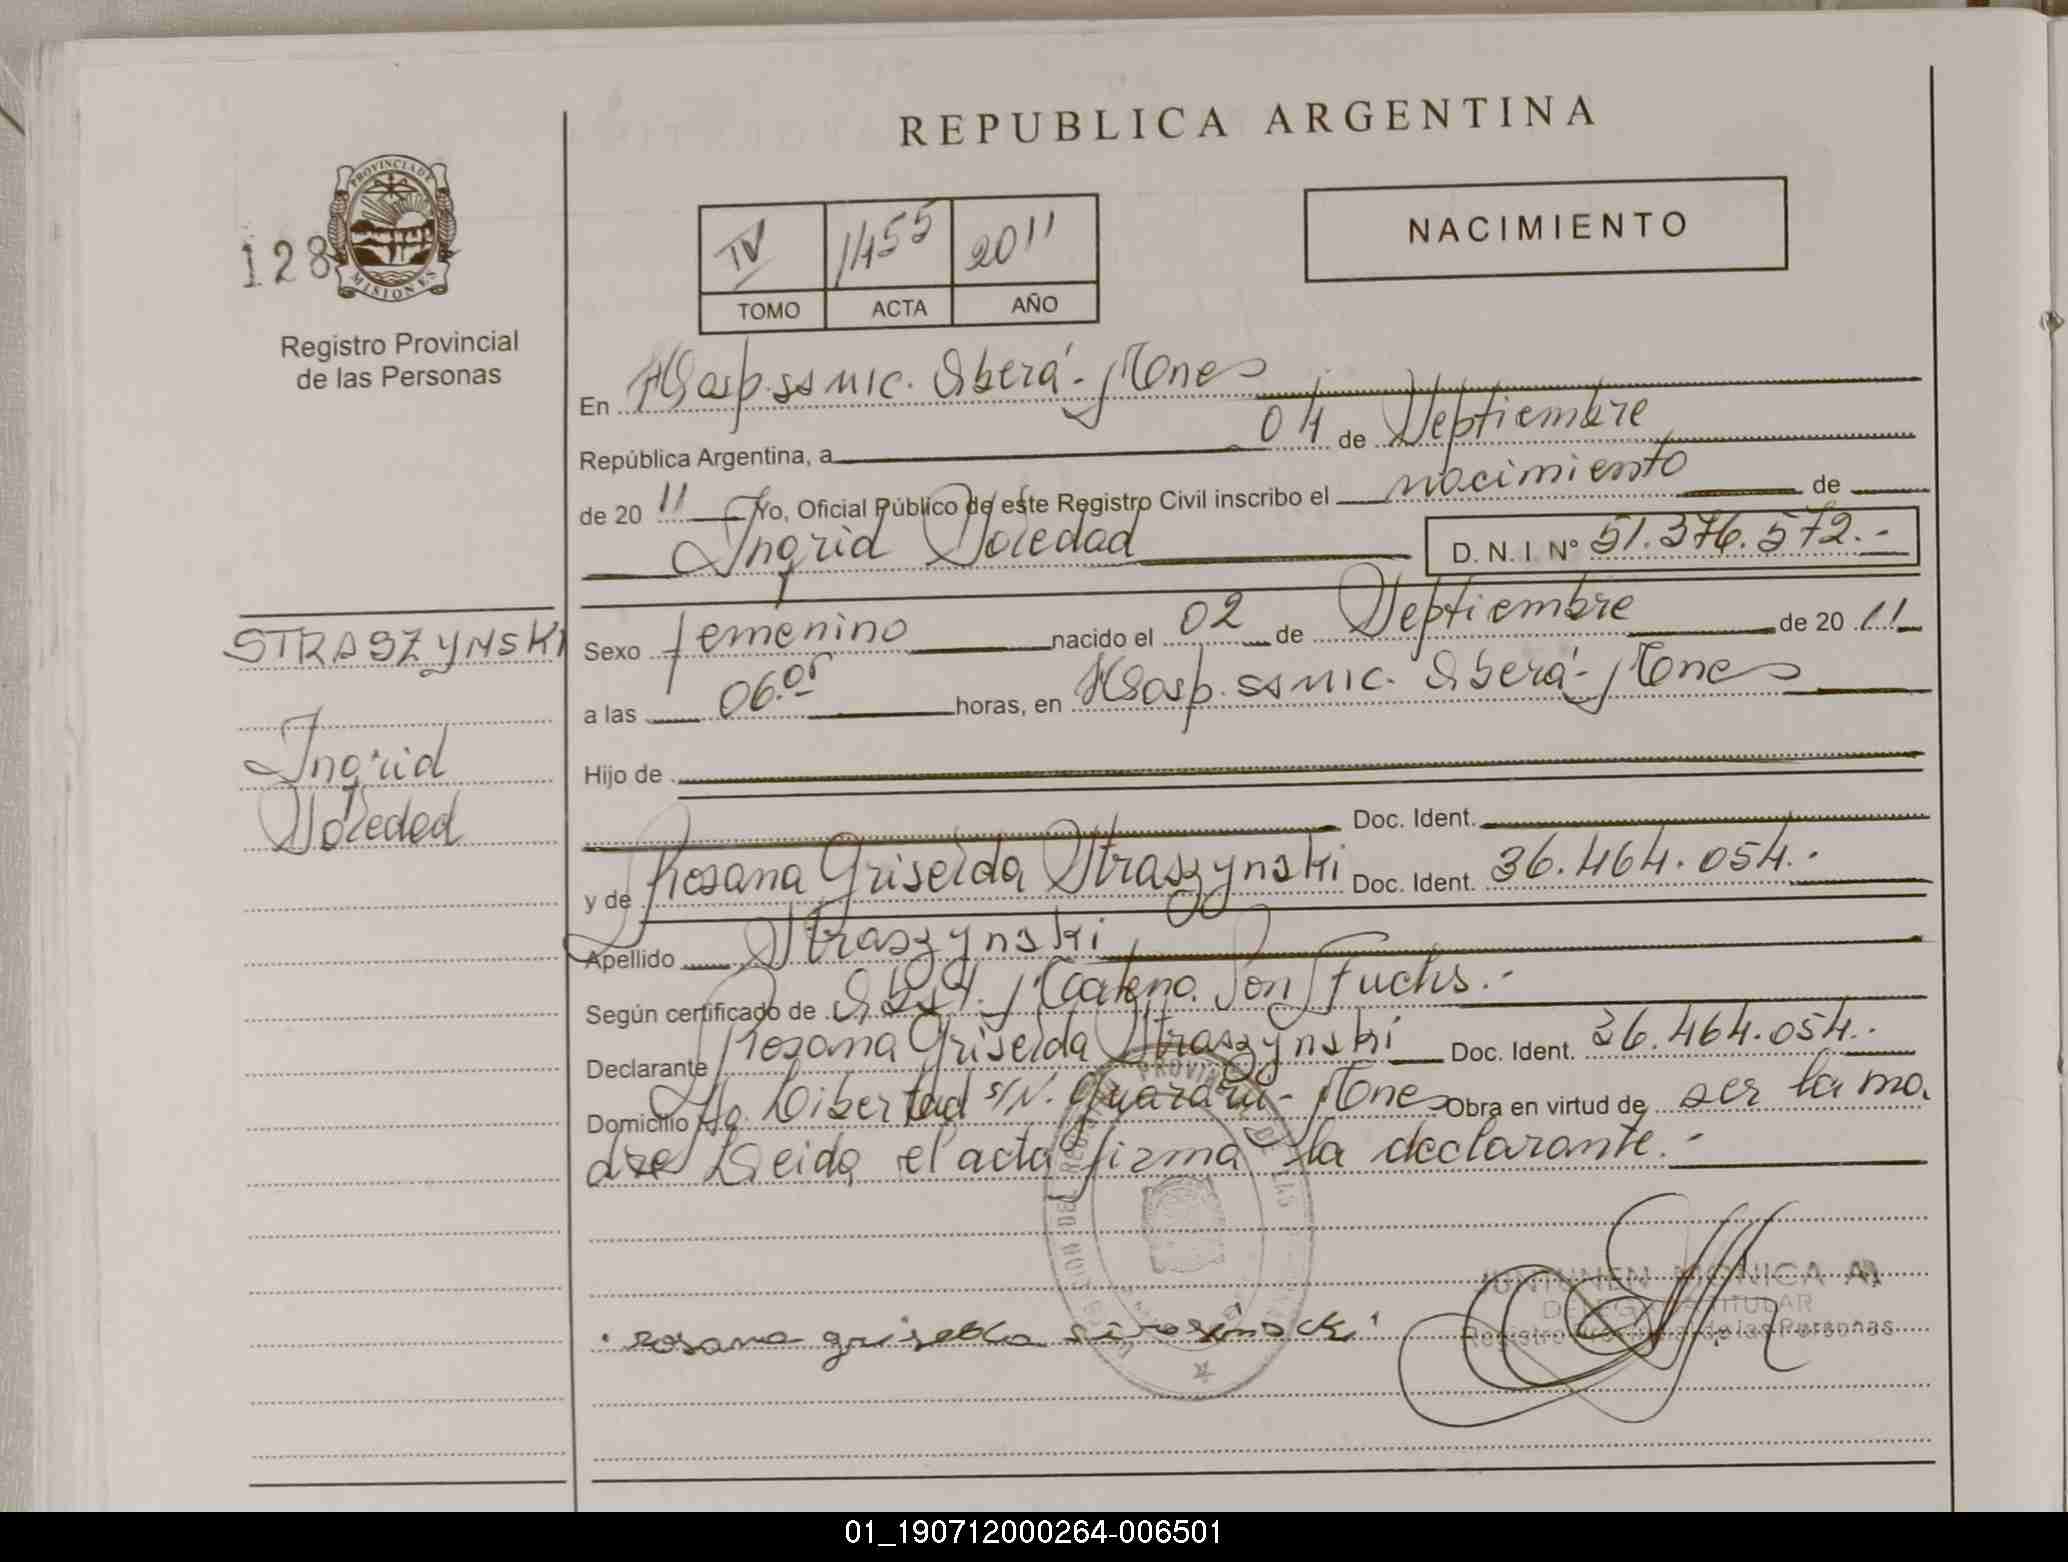 REPUBLICA ARGENTINA
PROVINCIA DE
MISIONES
128
Registro Provincial
de las Personas
IV 1455 2011
TOMO ACTA AÑO
NACIMIENTO
En Hosp. SSMIC. Oberá - Mnes
República Argentina, a 04 de Septiembre
de 20 11 Yo, Oficial Público de este Registro Civil inscribo el nacimiento de
Ingrid Soledad D. N. I. N° 51.376.572.-
STRASZYNSKI
Ingrid
Soledad
Sexo femenino nacido el 02 de Septiembre de 20 11
a las 06.05 horas, en Hosp. SSMIC. Oberá - Mnes
Hijo de
Doc. Ident.
y de Rosana Griselda Straszynski Doc. Ident. 36.464.054.-
Apellido Straszynski
Según certificado de Obst. Fuchs.-
Declarante Rosana Griselda Straszynski Doc. Ident. 36.464.054.-
Domicilio Libertad s/N. Guaraní - Mnes Obra en virtud de ser la ma
dre Leida el acta firma la declarante.-
PROVINCIAL DE LAS
rosana griselda
JUNTUNEN MONICA A.
DELEGADA TITULAR
Registro Provincial de las Personas
01_190712000264-006501